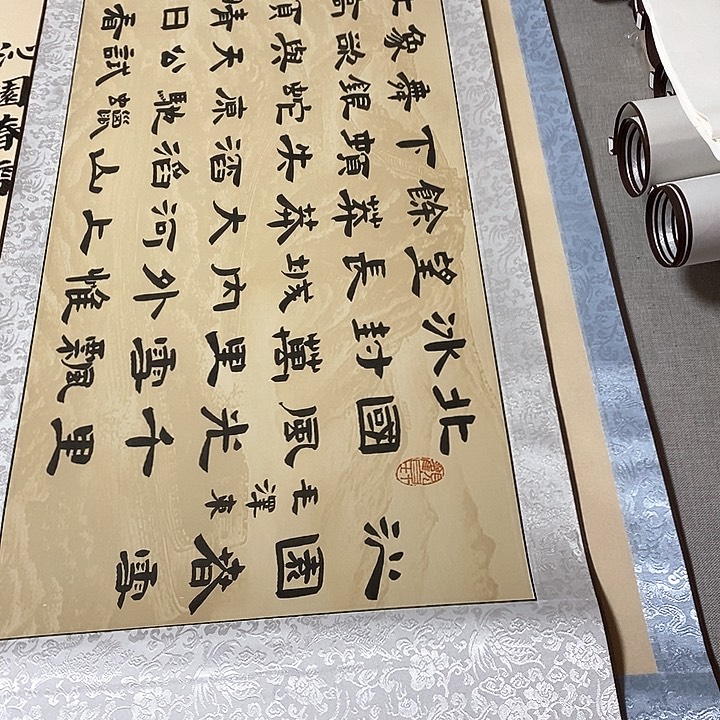 沁園春雪
毛澤東
北國風光千里
冰封萬里雪飄
望長城內外惟
餘莽莽大河上
下頓失滔滔山
舞銀蛇原馳蠟
象欲與天公試
高須晴日看
沁園春雪